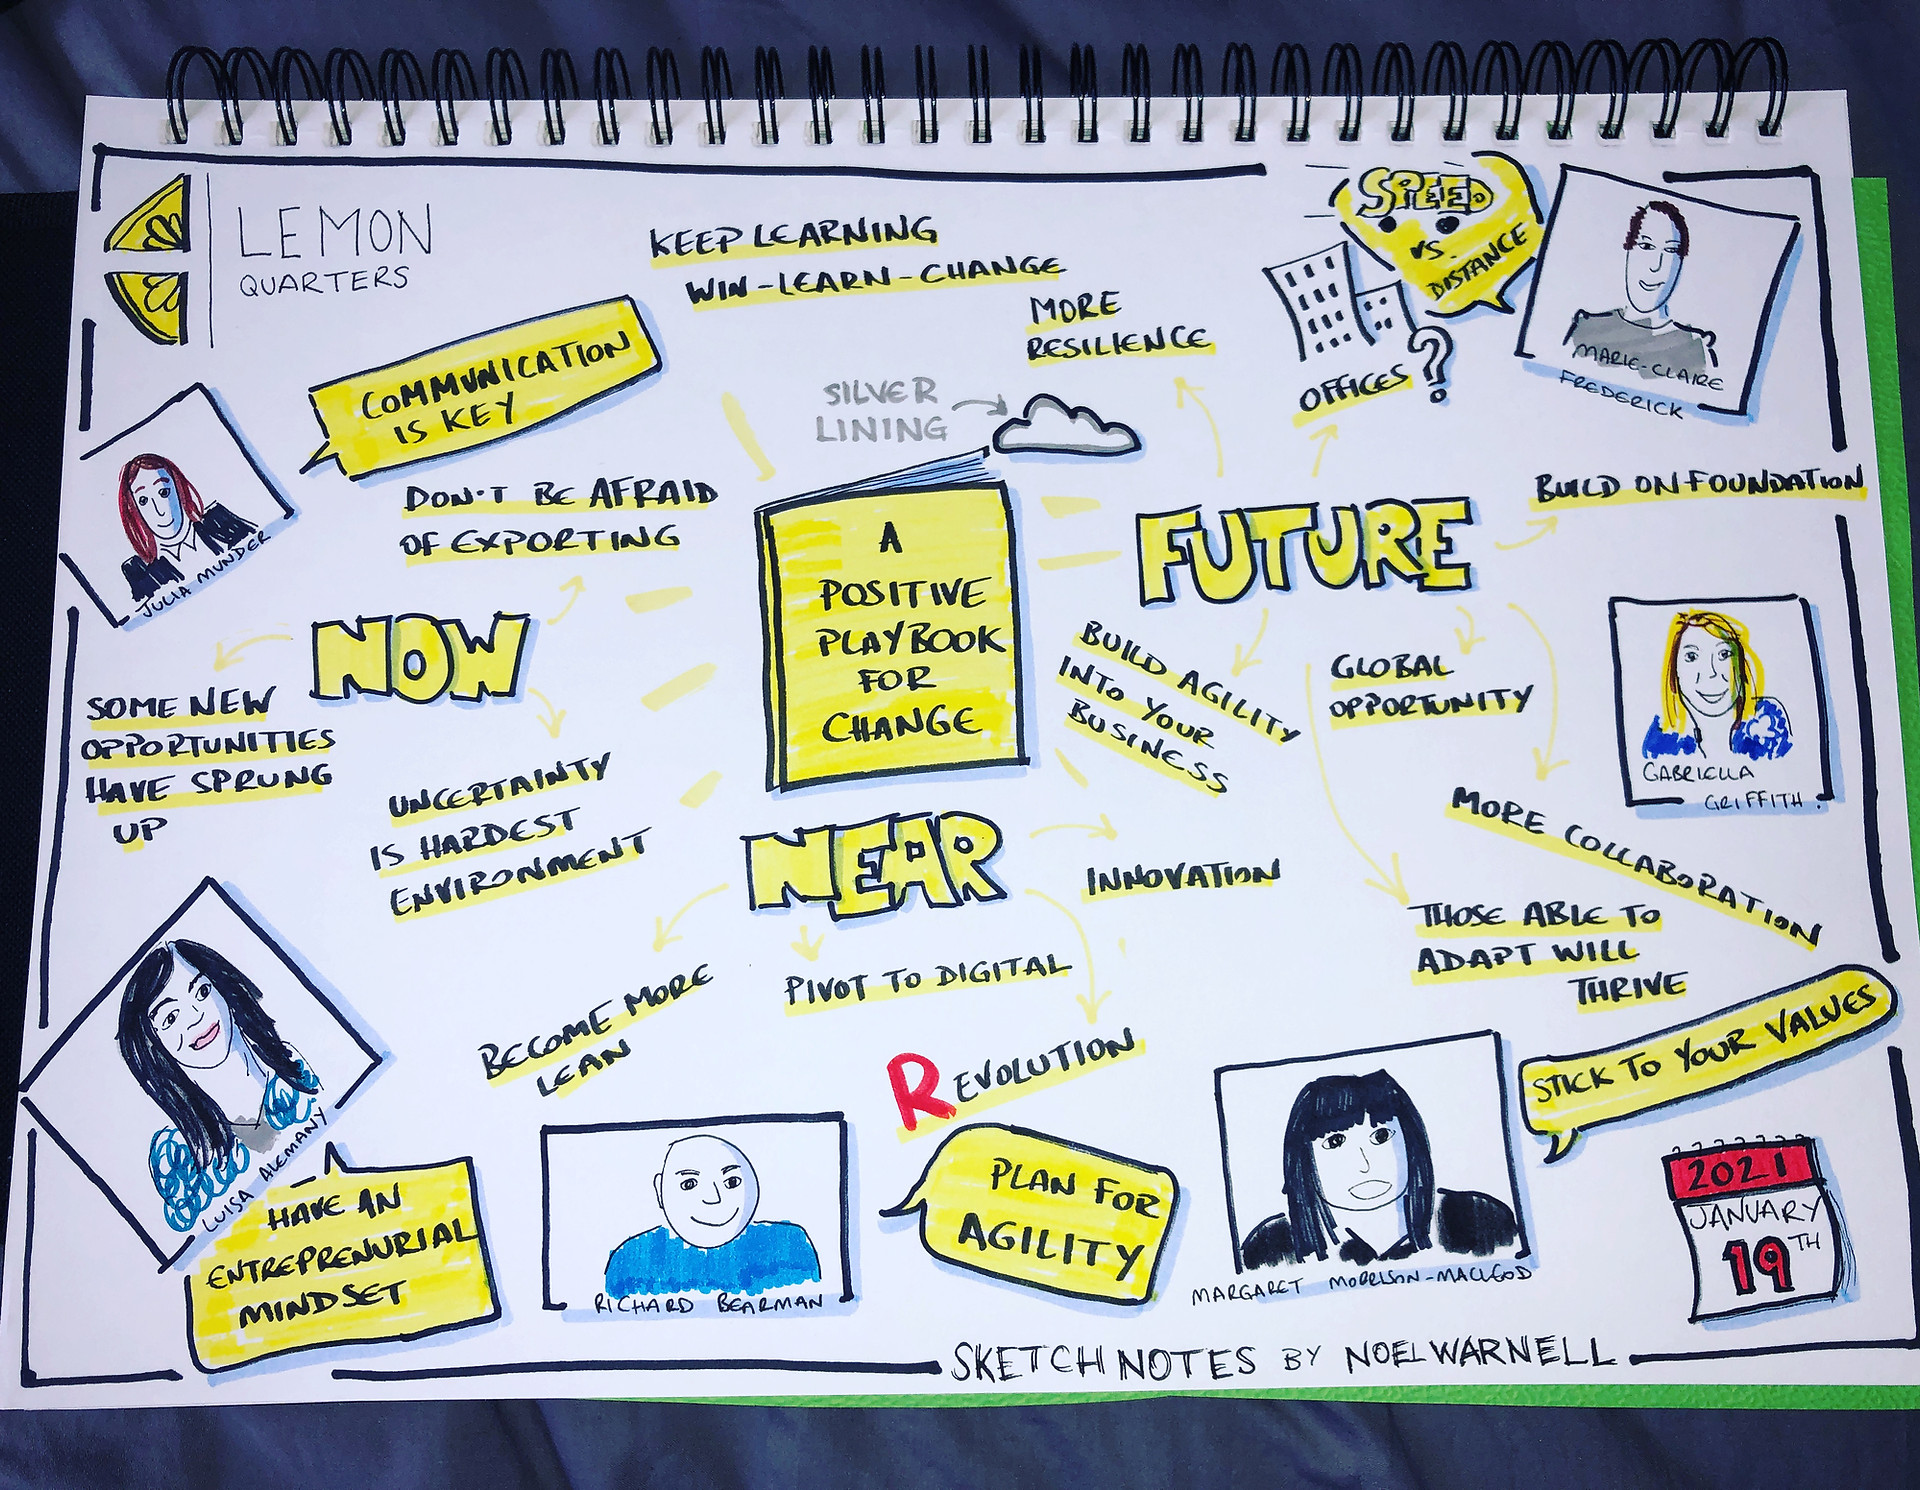 LEMON
QUARTERS
KEEP LEARNING
WIN-LEARN-CHANGE
MORE
RESILIENCE
SPEED
VS.
DISTANCE
OFFICES?
MARIE-CLAIRE
FREDERICK
COMMUNICATION
IS KEY
SILVER
LINING
JULIA MUNDER
DON'T BE AFRAID
OF EXPORTING
A
POSITIVE
PLAYBOOK
FOR
CHANGE
FUTURE
BUILD ON FOUNDATION
NOW
SOME NEW
OPPORTUNITIES
HAVE SPRUNG
UP
UNCERTAINTY
IS HARDEST
ENVIRONMENT
BUILD AGILITY
INTO YOUR
BUSINESS
GLOBAL
OPPORTUNITY
GABRIELLA
GRIFFITH.
MORE COLLABORATION
THOSE ABLE TO
ADAPT WILL
THRIVE
NEAR
INNOVATION
BECOME MORE
LEAN
PIVOT TO DIGITAL
REVOLUTION
LUISA ALEMANY
HAVE AN
ENTREPRENURIAL
MINDSET
RICHARD BEARMAN
PLAN FOR
AGILITY
MARGARET MORRISON-MACLEOD
STICK TO YOUR VALUES
2021
JANUARY
19TH
SKETCHNOTES BY NOEL WARNELL